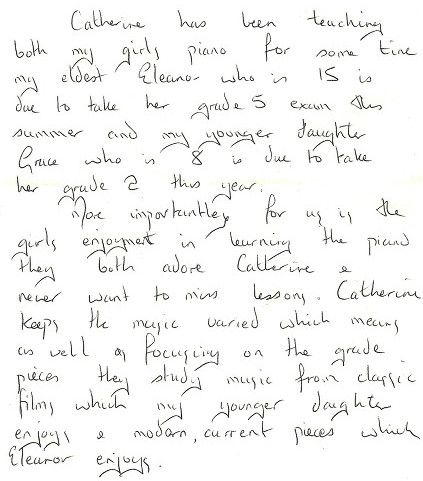 Catherine has been teaching
both my girls piano for some time
my eldest Eleanor who is 15 is
due to take her grade 5 exam this
summer and my younger daughter
Grace who is 8 is due to take
her grade 2 this year.
More importantley for us is the
girls enjoyment in learning the piano
they both adore Catherine &
never want to miss lessons. Catherine
keeps the music varied which means
as well as focusing on the grade
pieces they study music from classic
films which my younger daughter
enjoys & modern, current pieces which
Eleanor enjoys.